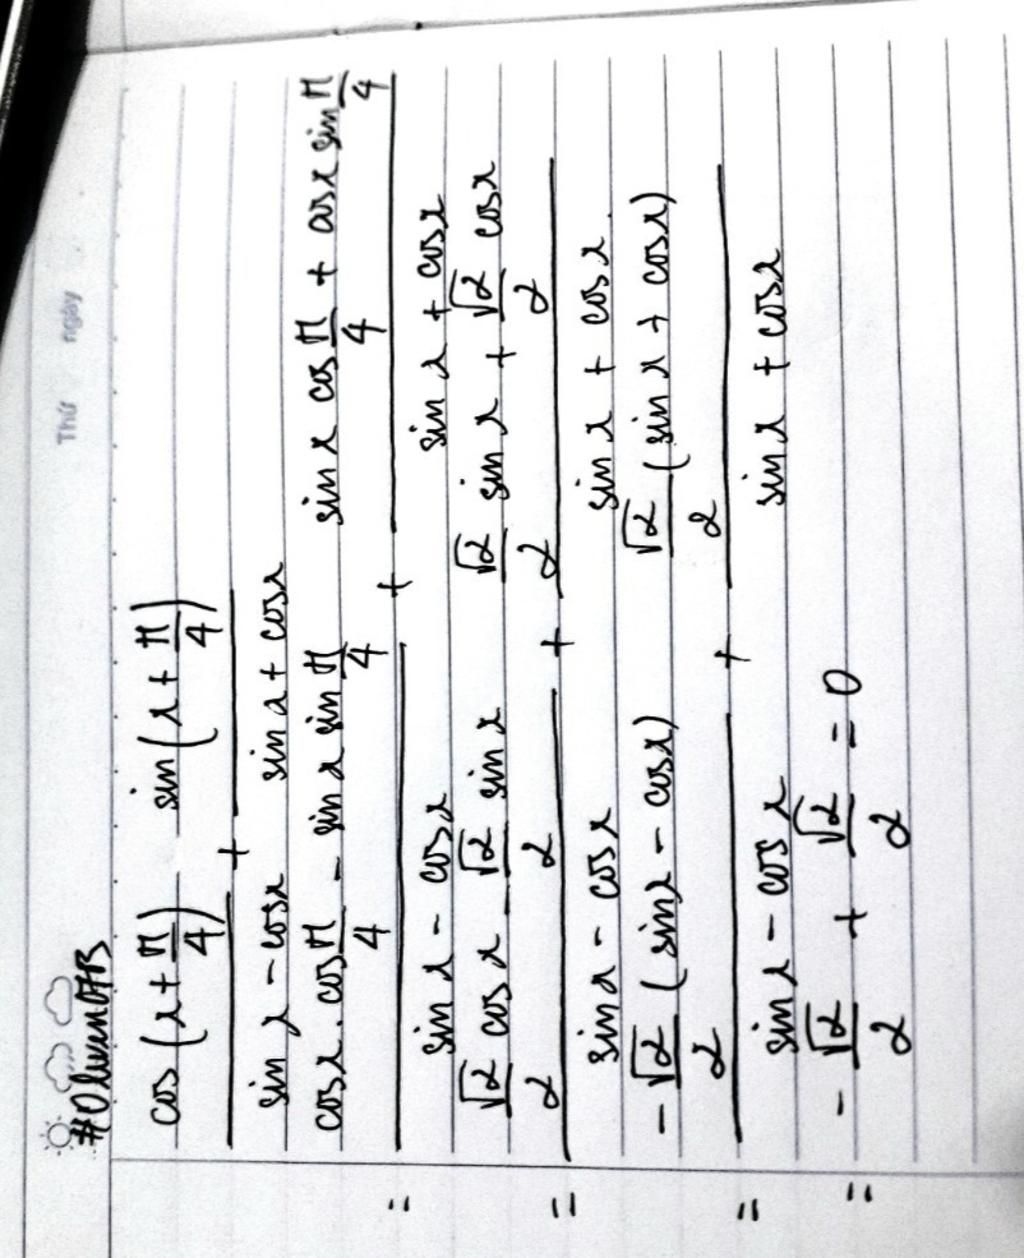 Thứ ngày
#OlwenDTB
cos(x + π/4) / (sin x - cos x) + sin(x + π/4) / (sin x + cos x)
= (cos x . cos π/4 - sin x sin π/4) / (sin x - cos x) + (sin x cos π/4 + cos x sin π/4) / (sin x + cos x)
= (√2/2 cos x - √2/2 sin x) / (sin x - cos x) + (√2/2 sin x + √2/2 cos x) / (sin x + cos x)
= -√2/2 (sin x - cos x) / (sin x - cos x) + √2/2 (sin x + cos x) / (sin x + cos x)
= -√2/2 + √2/2 = 0